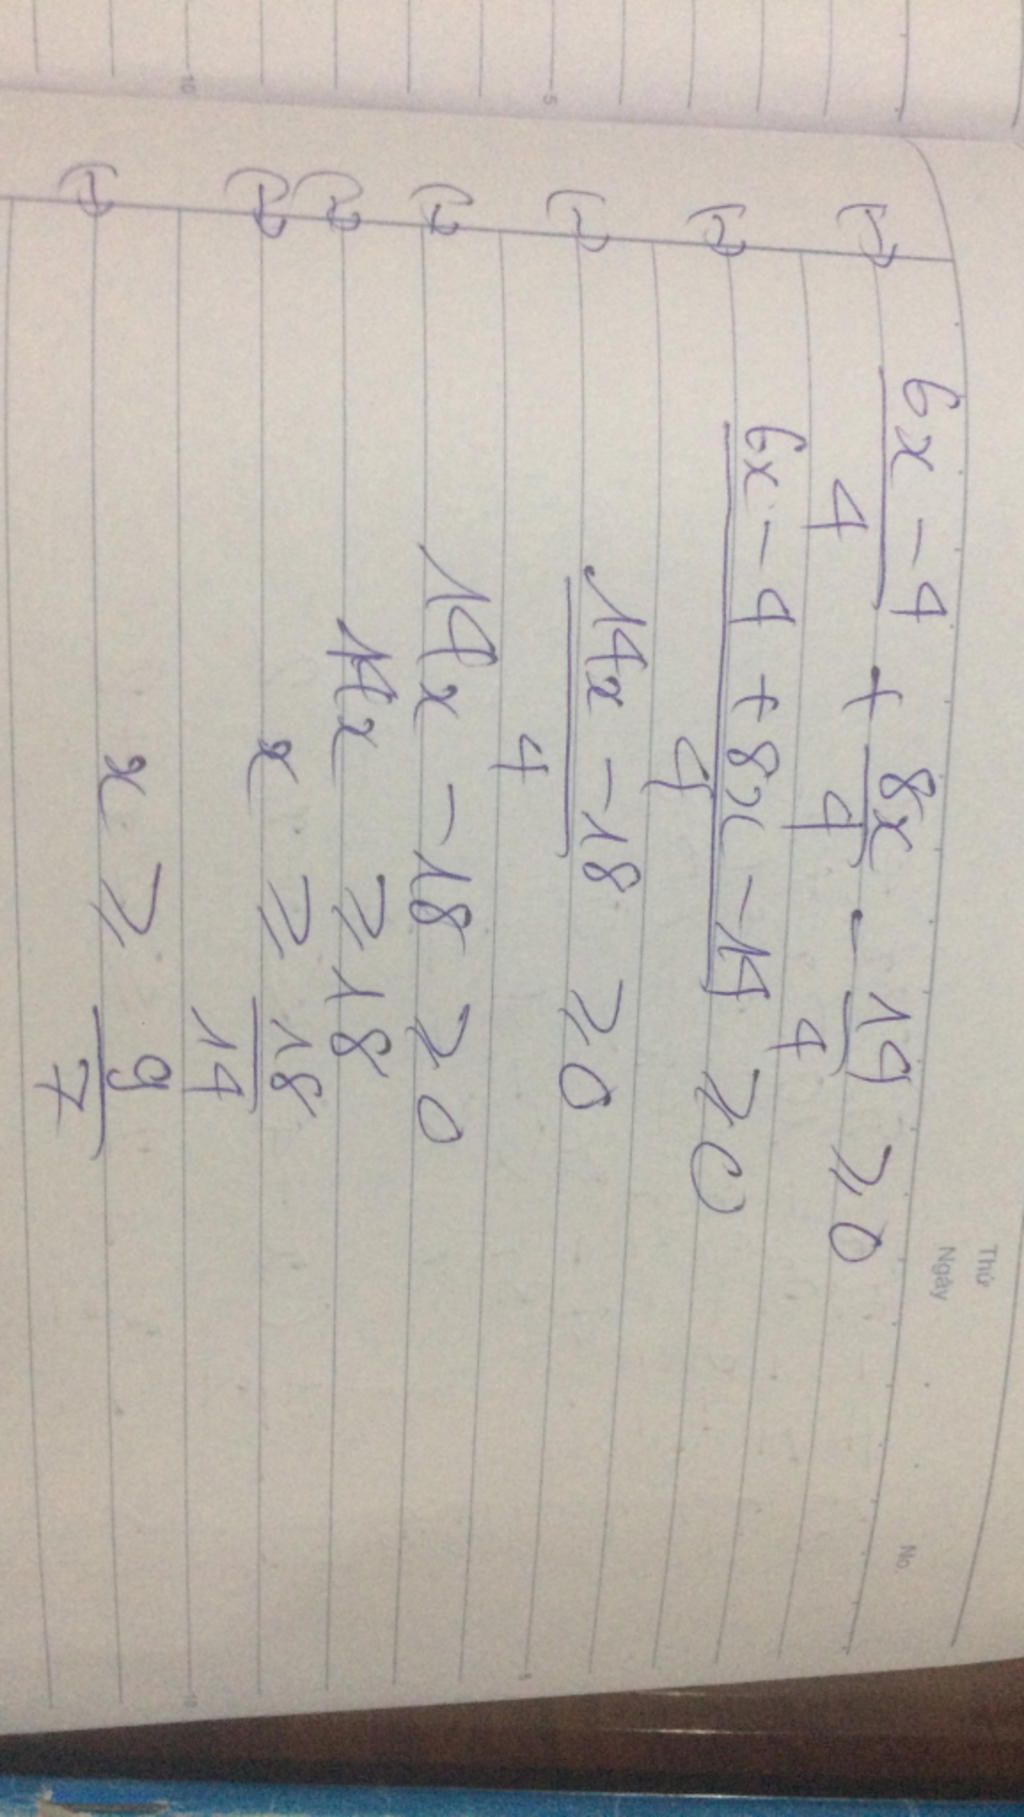 Thứ
Ngày No
⇔ (6x - 4)/4 + 8x/4 - 14/4 ≥ 0
⇔ (6x - 4 + 8x - 14)/4 ≥ 0
⇔ (14x - 18)/4 ≥ 0
⇔ 14x - 18 ≥ 0
⇔ 14x ≥ 18
⇔ x ≥ 18/14
⇔ x ≥ 9/7
5
10
5
10